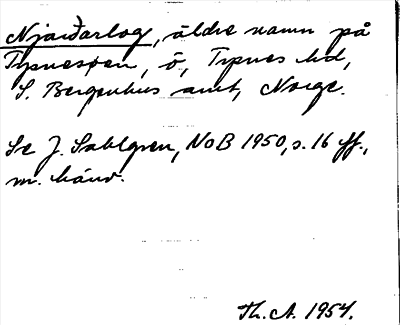 Njarðarlog, äldre namn på
Tysnesöen, ö, Tysnes hd,
S. Bergenhus amt, Norge.
Se J. Sahlgren, NoB 1950, s. 16 ff.,
m. hänv.
Th. A. 1954.